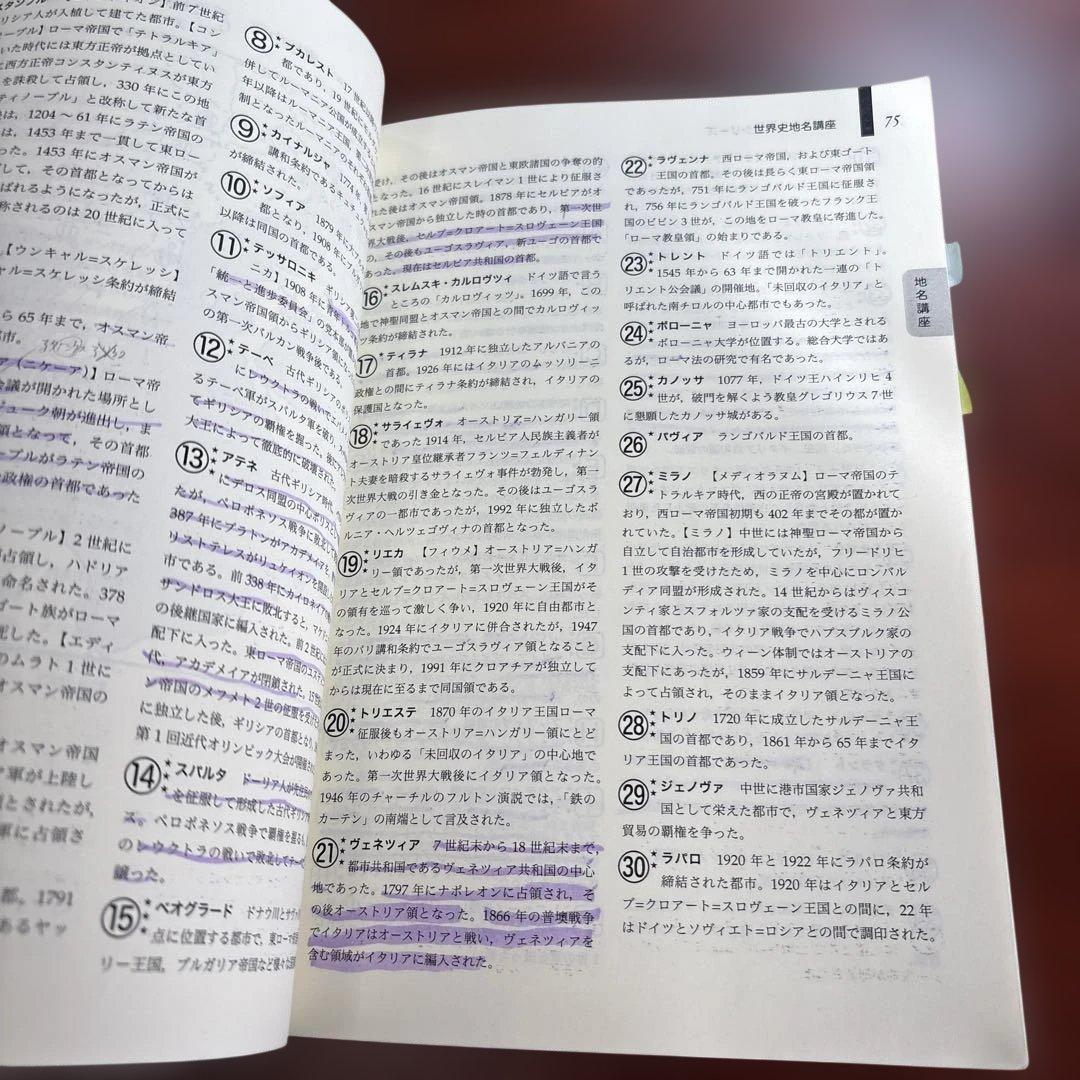 前7世紀
ギリシア人が入植して建てた都市。【コン
ノープル】ローマ帝国で「テトラルキア」
いた時代には東方正帝が拠点としてい
に西方正帝コンスタンティヌスが東方
を誅殺して占領し，330年にこの地
ティノープル」と改称して新たな首
後は，1204～61年にラテン帝国の
は，1453年まで一貫して東ロー
った。1453年にオスマン帝国
て，その首都となってからは
ばれるようになったが，正式に
称されるのは20世紀に入って
【ウンキャル=スケレッシ】
ャル=スケレッシ条約が締結
ら65年まで，オスマン帝
都市。
ア（ニケーア）】ローマ帝
会議が開かれた場所とし
ジューク朝が進出し，ま
領となって，その首都
ープルがラテン帝国の
政権の首都であった
ノープル】2世紀に
占領し，ハドリア
命名された。378
ゴート族がローマ
死した。【エディ
のムラト1世に
オスマン帝国の
オスマン帝国
軍が上陸し
とされたが，
軍に占領さ
都。1791
あるヤッ
⑧ ブカレスト 17世紀
都であり，19世紀
併してルーマニア公国が
年以降はルーマニア王国，第
制となったルーマニアの
⑨ カイナルジャ 1774年
講和条約である
が締結された。
⑩ ソフィア 1879年に
都となり，1908年に
以降は同国の首都である。
⑪ テッサロニキ ギリシア
ニカ】1908年に青年ト
「統一と進歩委員会」の党本部
スマン帝国領からギリシア領になっ
の第一次バルカン戦争後である。
⑫ テーベ 古代ギリシアの
にレウクトラの戦いで
るテーベ軍がスパルタ軍を破り，
てギリシアの覇権を握った。後に
大王によって徹底的に破壊された。
⑬ アテネ 古代ギリシア時代，
にデロス同盟の中心ポリス
たが，ペロポネソス戦争に敗北
387年にプラトンがアカデメイアを
リストテレスがリュケイオンを開設
市である。前338年にカイロネイアの
サンドロス大王に敗北すると，マケド
の後継国家に編入された。前2世紀に
配下に入った。東ローマ帝国のユステ
代，アカデメイアが閉鎖された。15世
ン帝国のメフメト2世の征服を受け
に独立した後，ギリシアの首都となり，
第1回近代オリンピック大会が開催され
⑭ スパルタ ドーリア人が先住
を征服して形成した古代ギリシア
ス。ペロポネソス戦争で覇権を握る
のレウクトラの戦いで敗北してテーベ
譲った。
⑮ ベオグラード ドナウ川とサヴァ
点に位置する都市で，東ローマ帝
リー王国，ブルガリア帝国など様々な国
世界史地名講座 75
受け，その後はオスマン帝国と東欧諸国の争奪の的
となった。16世紀にスレイマン1世により征服さ
れた後はオスマン帝国領。1878年にセルビアがオ
スマン帝国から独立した時の首都であり，第一次世
界大戦後，セルブ=クロアート=スロヴェーン王国
の，その後もユーゴスラヴィア，新ユーゴの首都で
あった。現在はセルビア共和国の首都。
⑯ スレムスキ・カルロヴツィ ドイツ語で言う
ところの「カルロヴィッツ」。1699年，この
地で神聖同盟とオスマン帝国との間でカルロヴィッ
ツ条約が締結された。
⑰ ティラナ 1912年に独立したアルバニアの
首都。1926年にはイタリアのムッソリーニ
政権との間にティラナ条約が締結され，イタリアの
保護国となった。
⑱ サライェヴォ オーストリア=ハンガリー領
であった1914年，セルビア人民族主義者が
オーストリア皇位継承者フランツ=フェルディナン
ト夫妻を暗殺するサライェヴォ事件が勃発し，第一
次世界大戦の引き金となった。その後はユーゴスラ
ヴィアの一都市であったが，1992年に独立したボ
ルニア・ヘルツェゴヴィナの首都となった。
⑲ リエカ 【フィウメ】オーストリア=ハンガ
リー領であったが，第一次世界大戦後，イタ
リアとセルブ=クロアート=スロヴェーン王国がそ
の領有を巡って激しく争い，1920年に自由都市と
なった。1924年にイタリアに併合されたが，1947
年のパリ講和条約でユーゴスラヴィア領となること
が正式に決まり，1991年にクロアチアが独立して
からは現在に至るまで同国領である。
⑳ トリエステ 1870年のイタリア王国ローマ
征服後もオーストリア=ハンガリー領にとど
まった，いわゆる「未回収のイタリア」の中心地で
あった。第一次世界大戦後にイタリア領となった。
1946年のチャーチルのフルトン演説では，「鉄の
カーテン」の南端として言及された。
㉑ ヴェネツィア 7世紀末から18世紀末まで，
都市共和国であるヴェネツィア共和国の中心
地であった。1797年にナポレオンに占領され，そ
の後オーストリア領となった。1866年の普墺戦争
でイタリアはオーストリアと戦い，ヴェネツィアを
含む領域がイタリアに編入された。
㉒ ラヴェンナ 西ローマ帝国，および東ゴート
王国の首都。その後は長らく東ローマ帝国領
であったが，751年にランゴバルド王国に征服さ
れ，756年にランゴバルド王国を破ったフランク王
国のピピン3世が，この地をローマ教皇に寄進した。
「ローマ教皇領」の始まりである。
㉓ トレント ドイツ語では「トリエント」。
1545年から63年まで開かれた一連の「ト
リエント公会議」の開催地。「未回収のイタリア」と
呼ばれた南チロルの中心都市でもあった。
㉔ ボローニャ ヨーロッパ最古の大学とされる
ボローニャ大学が位置する。総合大学ではあ
るが，ローマ法の研究で有名であった。
㉕ カノッサ 1077年，ドイツ王ハインリヒ4
世が，破門を解くよう教皇グレゴリウス7世
に懇願したカノッサ城がある。
㉖ パヴィア ランゴバルド王国の首都。
㉗ ミラノ 【メディオラヌム】ローマ帝国のテ
トラルキア時代，西の正帝の宮殿が置かれて
おり，西ローマ帝国初期も402年までその都が置か
れていた。【ミラノ】中世には神聖ローマ帝国から
自立して自治都市を形成していたが，フリードリヒ
1世の攻撃を受けたため，ミラノを中心にロンバル
ディア同盟が形成された。14世紀からはヴィスコ
ンティ家とスフォルツァ家の支配を受けるミラノ公
国の首都であり，イタリア戦争でハプスブルク家の
支配下に入った。ウィーン体制ではオーストリアの
支配下にあったが，1859年にサルデーニャ王国に
よって占領され，そのままイタリア領となった。
㉘ トリノ 1720年に成立したサルデーニャ王
国の首都であり，1861年から65年までイタ
リア王国の首都であった。
㉙ ジェノヴァ 中世に港市国家ジェノヴァ共和
国として栄えた都市で，ヴェネツィアと東方
貿易の覇権を争った。
㉚ ラパロ 1920年と1922年にラパロ条約が
締結された都市。1920年はイタリアとセル
ブ=クロアート=スロヴェーン王国との間に，22年
はドイツとソヴィエト=ロシアとの間で調印された。
地名講座